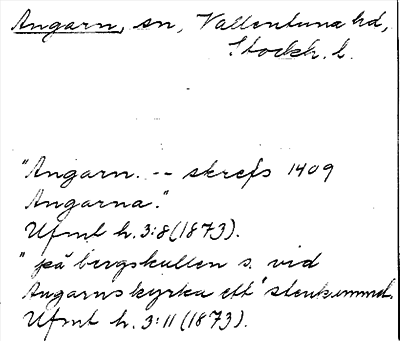 Angarn, sn, Vallentuna hd,
Stockh. l.
"Angarn. -- skrefs 1409
Angarna."
Ufmt h. 3:8 (1873).
"på bergskullen s. vid
Angarns kyrka ett stenkummel.
Ufmt h. 3:11 (1873).